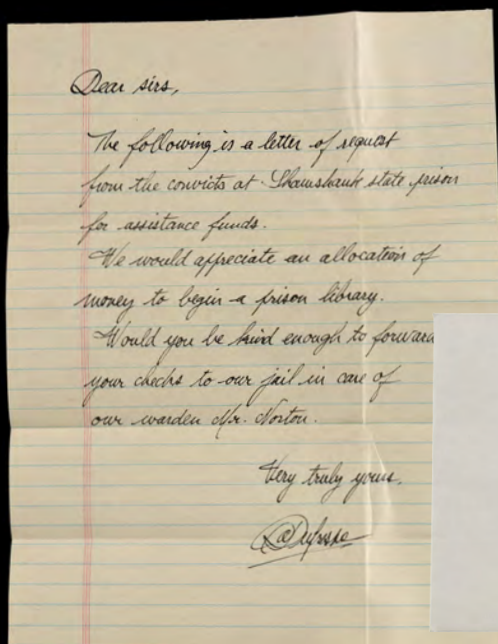 Dear sirs,
The following is a letter of request
from the convicts at Shawshank state prison
for assistance funds.
We would appreciate an allocation of
money to begin a prison library.
Would you be kind enough to forward
your checks to our jail in care of
our warden Mr. Norton.
Very truly yours,
A Dufresne